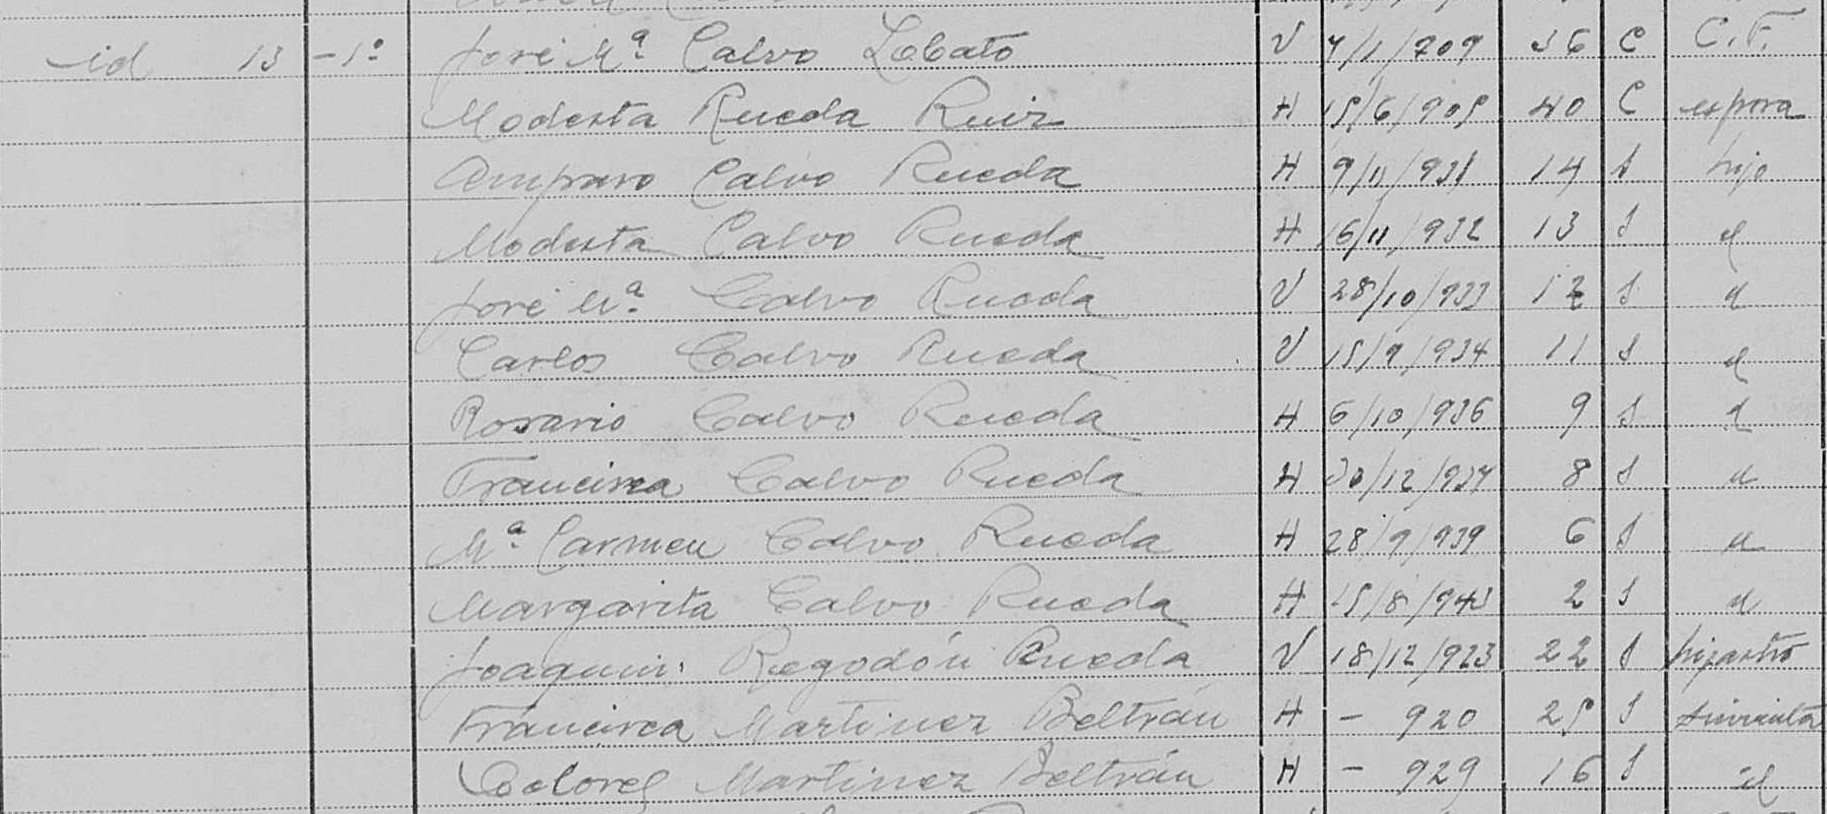 id 13 - 1º José Mª Calvo Lobato V 7/1/909 36 C C.F.
Modesta Rueda Ruiz H 15/6/905 40 C esposa
Amparo Calvo Rueda H 9/11/931 14 S hijo
Modesta Calvo Rueda H 16/11/932 13 S id
José Mª Calvo Rueda V 28/10/933 12 S id
Carlos Calvo Rueda V 15/9/934 11 S id
Rosario Calvo Rueda H 6/10/936 9 S id
Francisca Calvo Rueda H 30/12/937 8 S id
Mª Carmen Calvo Rueda H 28/9/939 6 S id
Margarita Calvo Rueda H 15/8/943 2 S id
Joaquin Regodón Rueda V 18/12/923 22 S hijastro
Francisca Martinez Beltrán H - 920 25 S sirvienta
Dolores Martinez Beltrán H - 929 16 S id